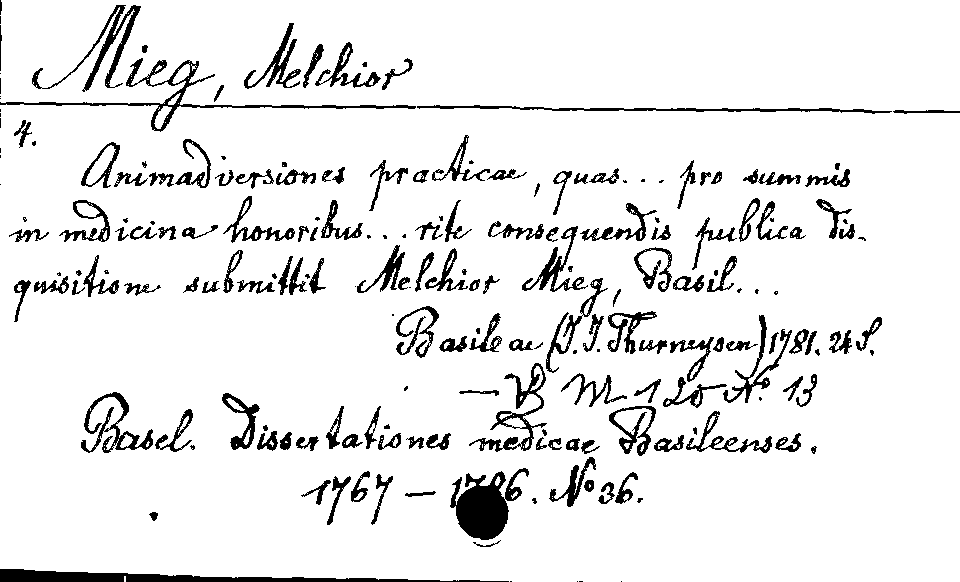 Mieg, Melchior
4.
Animadversiones practicae, quas... pro summis
in medicina honoribus... rite consequendis publica dis-
quisitione submittit Melchior Mieg, Basil...
Basileae (J. J. Thurneysen) 1781. 24 S.
— VB M 120 No. 13
Basel. Dissertationes medicae Basileenses.
1767 — 1786. No 36.